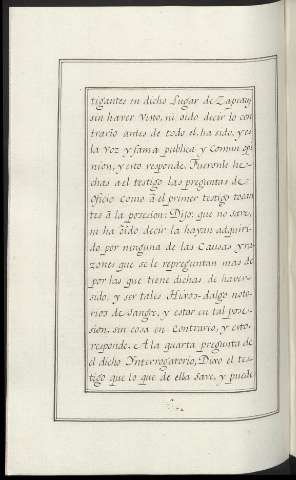 tigantes en dicho Lugar de Zapuay,
sin haver Visto, ni oido decir lo con
trario antes de todo el, ha sido, y es
la Voz y fama publica y Comun opi
nion, y esto responde. Fueronle he-
chas a el testigo las preguntas de
Oficio Como á el primer testigo tocan
tes á la posesion: Dijo: que no save,
ni ha óido decir la hayan adquiri-
do por ninguna de las Causas y ra-
zones que se le repreguntan mas de
por las que tiene dichas de haver
sido, y ser tales Hijos-dalgo noto-
rios de Sangre, y estar en tal pose-
sion, sin cosa en Contrario, y esto,
responde. A la quarta pregunta de
el dicho Interrogatorio, Dixo el tes-
tigo que lo que de ella save, y puede